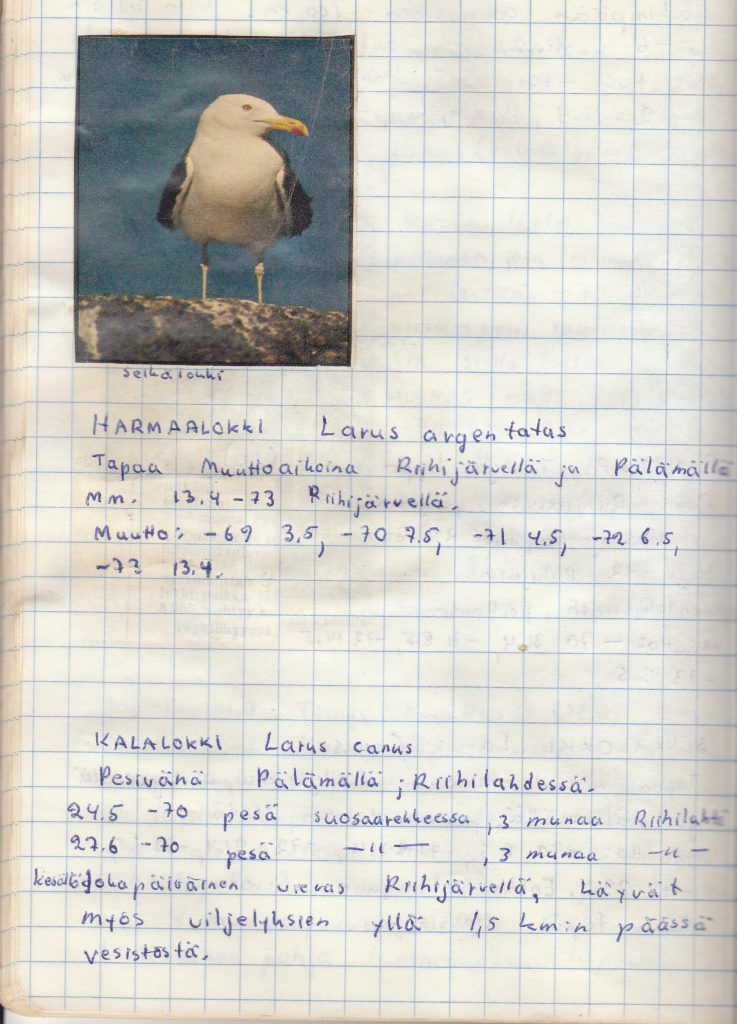 Selkälokki
HARMAALOKKI Larus argentatus
Tapaa Muuttoaikoina Riihijärvellä ja Pälämällä
mm. 13.4 -73 Riihijärvellä.
Muutto: -69 3.5, -70 7.5, -71 4.5, -72 6.5,
-73 13.4.
KALALOKKI Larus canus
Pesivänä Pälämällä ; Riihilahdessä.
24.5 -70 pesä suosaarekkeessa, 3 munaa Riihilahti
27.6 -70 pesä —"— , 3 munaa —"—
kesällä Jokapäiväinen vieras Riihijärvellä, käyvät
myös viljelyksien yllä 1,5 km:n päässä
vesistöstä.